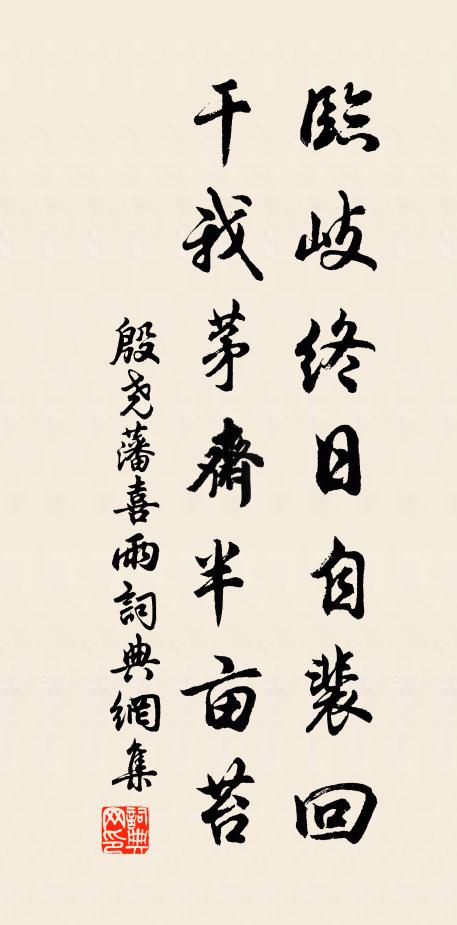 臨岐終日自裴回
干我茅齋半亩苔
殷尧藩喜雨詞典網集
詞典网印